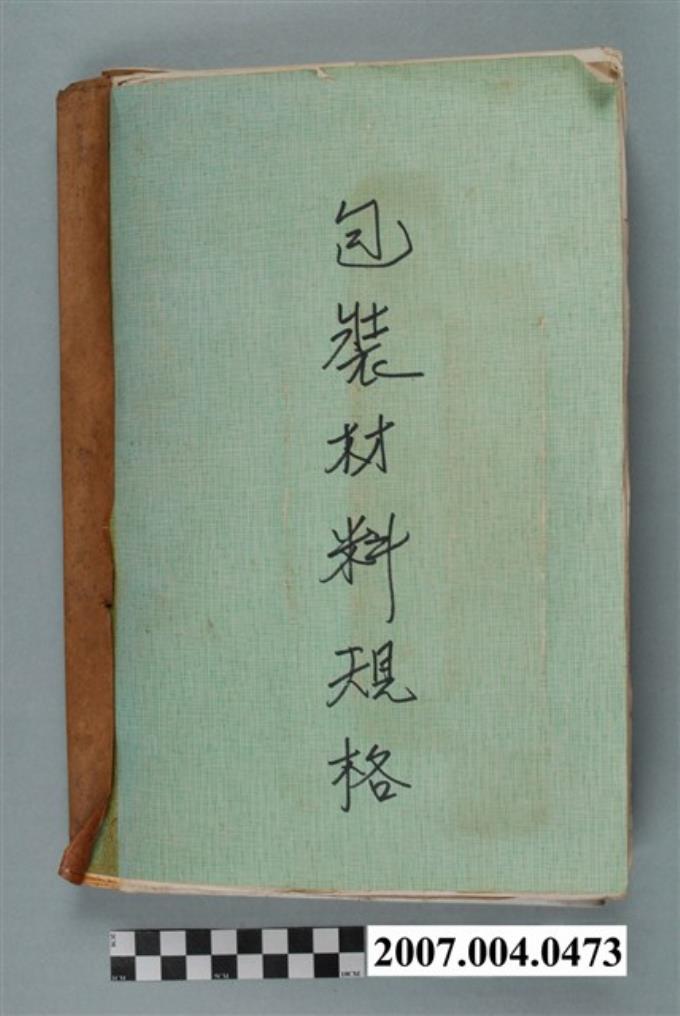 包裝材料規格
2007.004.0473